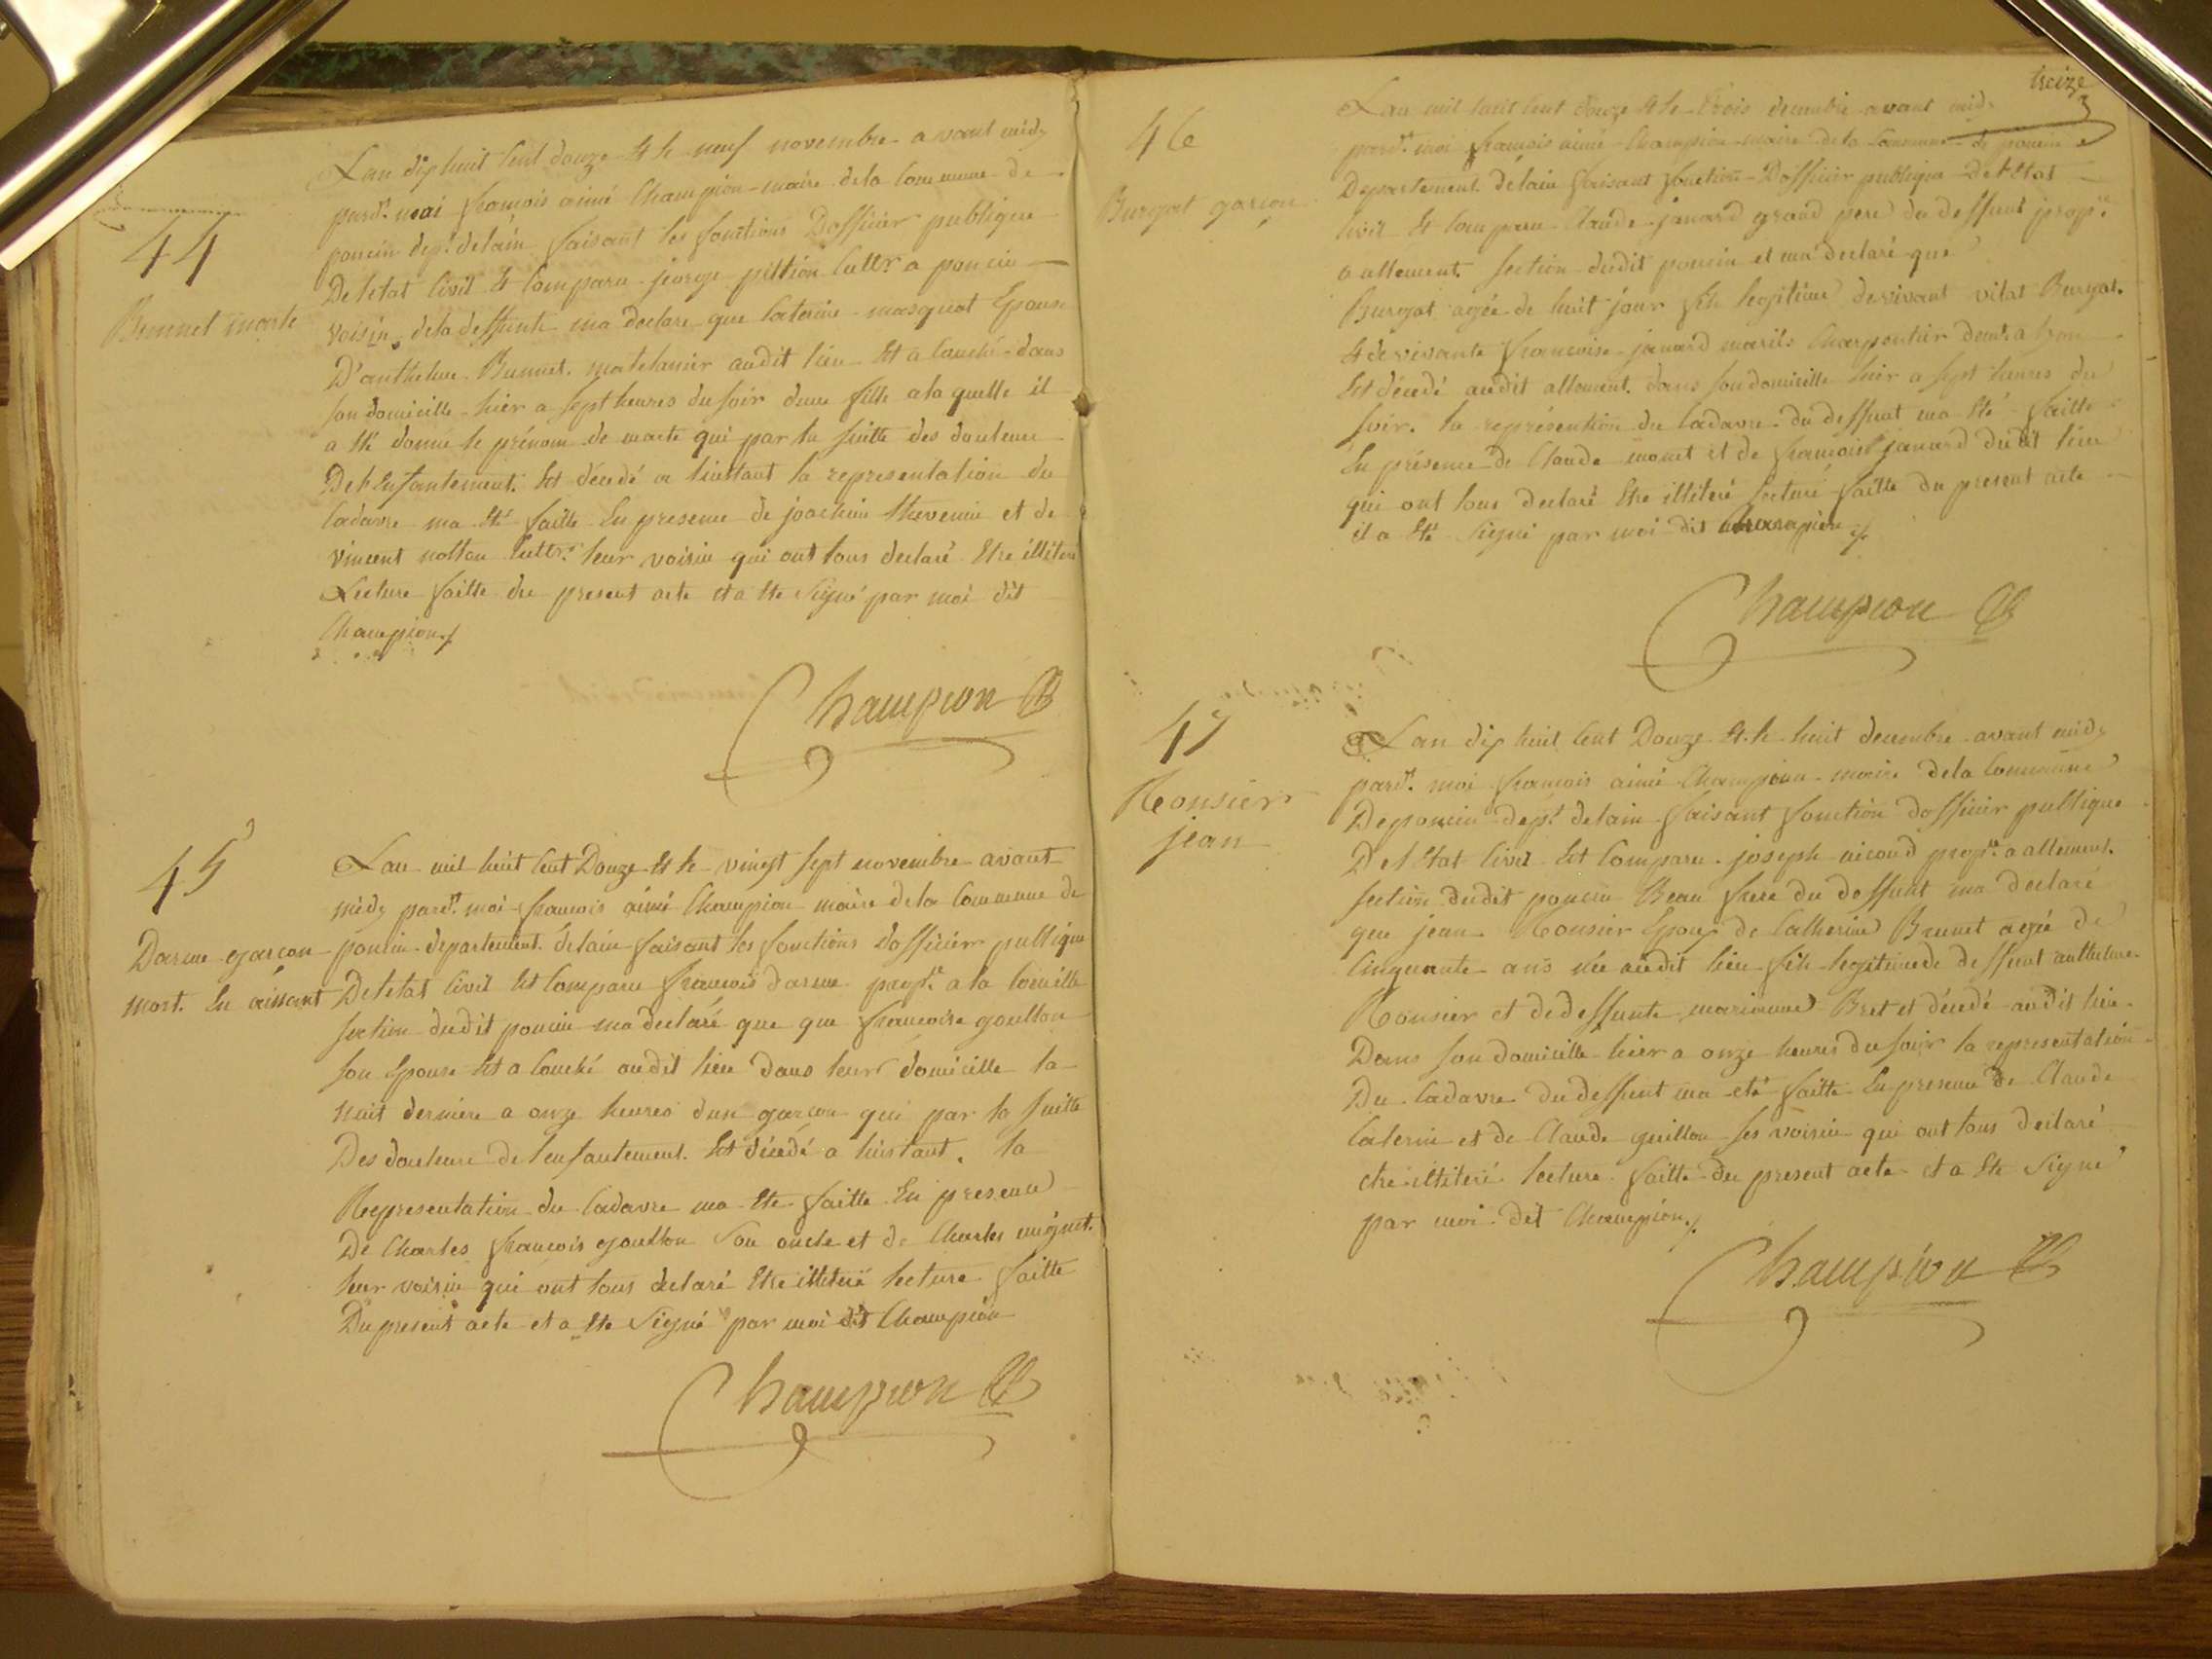 44
Brunnet marte
Lan dix huit cent douze & le neuf novembre avant midy
pard.t moi francois aimé Champion maire de la Commune de
poncin dep.t delain faisant les fonctions Dofficier publique
De letat Civil Et Comparu jeorge pittion Cultr a poncin
voisin de la deffunte ma declare que Caterine masquat Epouse
D'anthelme Brunnet matelassier audit lieu Et a Couché dans
son domicille hier a sept heures du soir dune fille a laquelle il
a été donné le prénom de marte qui par la suitte des douleurs
De l Enfantement Est décedé a linstant la representation du
Cadavre ma Eté faitte En presence de joachim thevenin et de
vincent notton Cultr.s leur voisin qui ont tous declaré Etre illiteré
Lecture faitte du present acte et a Ete signé par moi dit
Champion ./.
Champion
45
Darme garcon
mort. En naissant
Lan mil huit cent Douze & le vingt sept novembre avant
midy pard.t moi francois aimé Champion maire de la Commune de
poncin departement delain faisant les fonctions dofficier publique
De letat Civil Et Comparu francois darme prop.re a la
section dudit poncin ma declaré que que francoise goutton
son Epouse Et a Couché audit lieu Dans leur domicille la
nuit derniere a onze heures dun garcon qui par la suitte
Des douleurs de lenfantement. Est décedé a linstant. la
Representation du Cadavre ma Ete faitte En presence
De Charles francois goutton son oncle et de Charles mignet.
leur voisin qui ont tous declaré Etre illiteré lecture faitte
Du present acte et a Ete signé par moi dit Champion
Champion
treize
46
Burgat garcon
Lan mil huit cent douze & le trois decembre avant midy
pard.t moi francois aimé Champion maire de la Commune de poncin
Departement delain faisant fonction Dofficier publique De l Etat
Civil Et Comparu Claude janard grand pere du deffunt prop.re
a allement. section dudit poncin et ma declaré que
Burgat agée de huit jour fils legitime de vivant vital Burgat.
& de vivante francoise janard mariés Charpentier dem.t a lyon
Est décedé audit allement. dans son domicille hier a sept heures du
soir. la représention du Cadavre du deffunt ma Eté faitte
En présence de Claude monet et de francois janard dudit lieu
qui ont tous declaré Etre illiteré lecture faitte du present acte
il a Eté signé par moi dit Champion ./.
Champion
47
Rousier
jean
Lan dix huit cent Douze & le huit decembre avant midy
pard.t moi francois aimé Champion maire de la Commune
De poncin dep.t delain faisant fonction dofficier publique
De l Etat Civil Et Comparu joseph nicoud prop.re a allement.
section dudit poncin Beau frere du deffunt ma declaré
que jean Rousier Epoux de Catherine Brunet agée de
Cinquante ans née audit lieu fils legitime de deffunt anthelme
Rousier et de deffunte marianne Bret et décedé audit lieu
Dans son domicille hier a onze heures du soir la representation
Du Cadavre du deffunt ma eté faitte En presence de Claude
Caterin et de Claude guillon ses voisin qui ont tous declaré
etre illiteré lecture faitte du present acte et a Ete signé
par moi dit Champion ./.
Champion